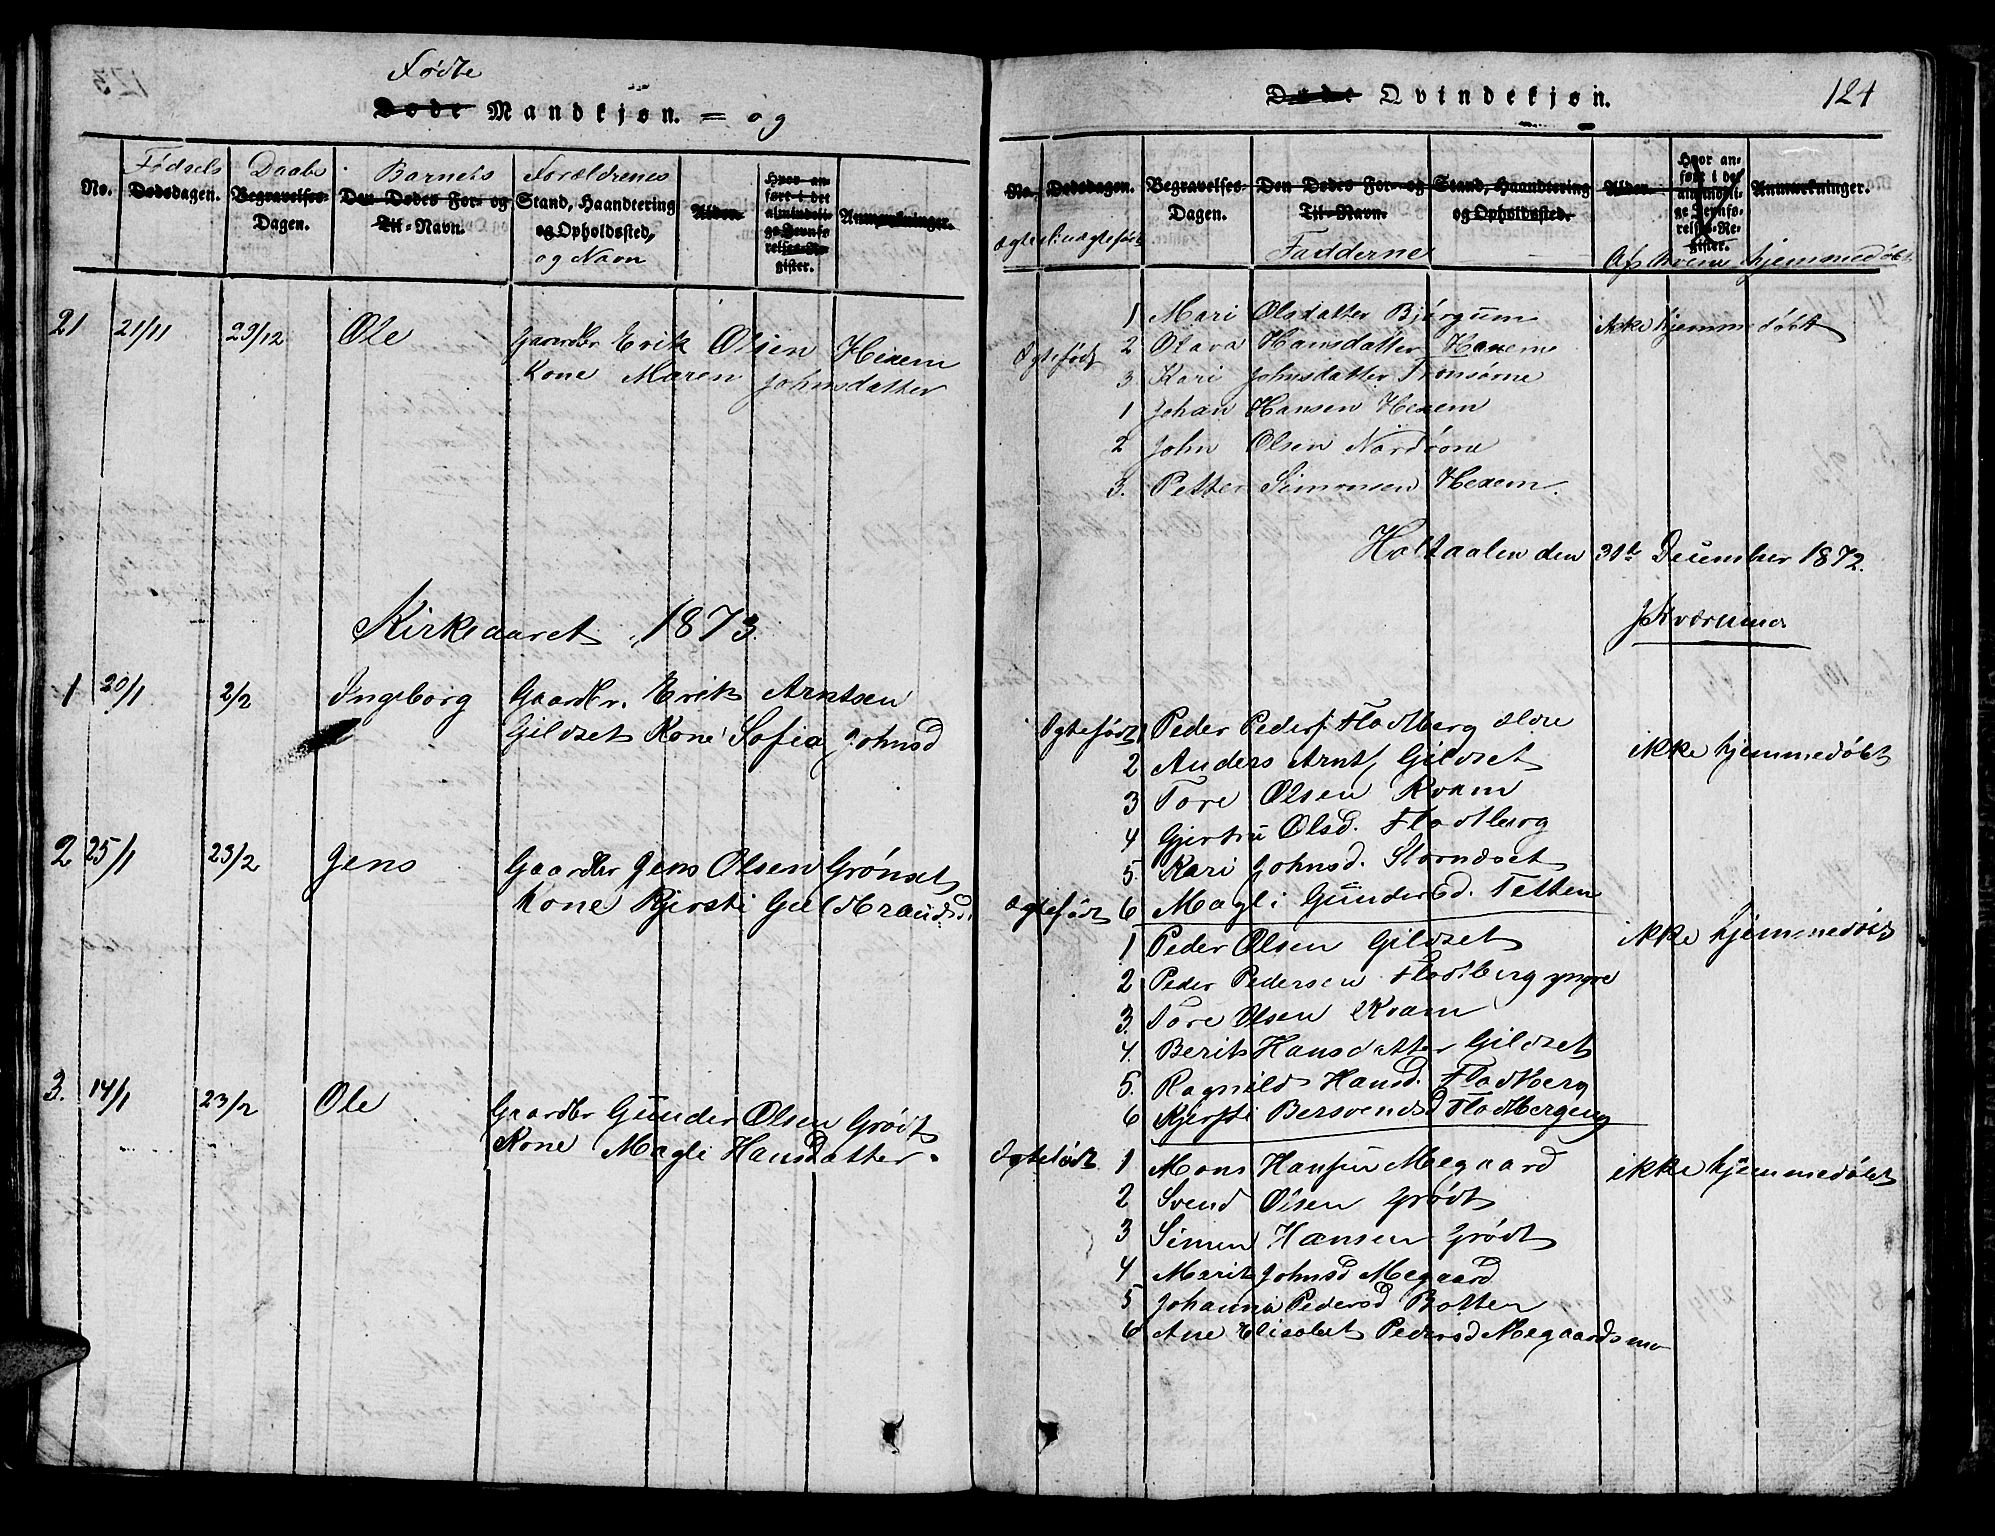 Fødte
Døde Mandkjøn. = og
No.
Fødsels
Dødsdagen.
Daabs
Begravelses-
Dagen.
Barnets
Den Dødes For- og
Til-Navn.
Forældrenes
Stand, Haandtering
og Opholdssted,
og Navn
Alder.
Hvor an-
ført i det
almindeli-
ge Jevnfø-
relses-Re-
gister.
Anmærkninger.
21 21/11 29/12 Ole Gaardbr Erik Olsen Hexem
Kone Maren Johnsdatter
Kirkeaaret 1873
1 20/1 2/2 Ingeborg Gaardbr. Erik Arntsen
Gildset Kone Sofia Johnsd
2 25/1 23/2 Jens Gaardbr Jens Olsen Grønset
Kone Kjersti Guldbrandsd.
3. 14/1 23/2 Ole Gaardbr Gunder Olsen Grødt
Kone Magli Hansdatter.
124
Døde Qvindekjøn.
No.
Dødsdagen.
Begravelses-
Dagen.
Den Dødes For- og
Til-Navn.
Stand, Haandtering
og Opholdssted.
Alder.
Hvor an-
ført i det
almindeli-
ge Jevnfø-
relses-Re-
gister.
Anmærkninger.
Fadderne
Af hvem hjemmedøbt
1 Mari Olsdatter Bjørgum ikke hjemmedøbt
Ægtefødt 2 Olava Hansdatter Hexem
3 Kari Johnsdatter Tronsørne
1 Johan Hansen Hexem
2 John Olsen Nordørne
3. Petter Simonsen Hexem.
Holtaalen den 31te December 1872.
Ægtefødt 1 Peder Peders. Flodberg ældre ikke hjemmedøbt
2 Anders Arnts. Gildset
3 Tore Olsen Kvam
4 Gjertru Olsd. Flodberg
5. Kari Johnsd. Stornæset
Ægtefødt 6 Magli Gundersd. Tetten
1 Peder Olsen Gildset ikke hjemmedøbt
2 Peder Pedersen Flodberg yngre
3. Tore Olsen Kvam
4. Berit Hansdatter Gildset
5. Ragnild Hansd. Flodberg
6 Kjersti Bersvendsd Flodbergeng
Ægtefødt 1 Mons Hansen Megaard ikke hjemmedøbt
2 Svend Olsen Grødt
3 Simen Hansen Grødt
4 Marit Johnsd Megaard
5 Johanna Pedersd Botten
6 Ane Elisabet Pedersd Megaardsmo